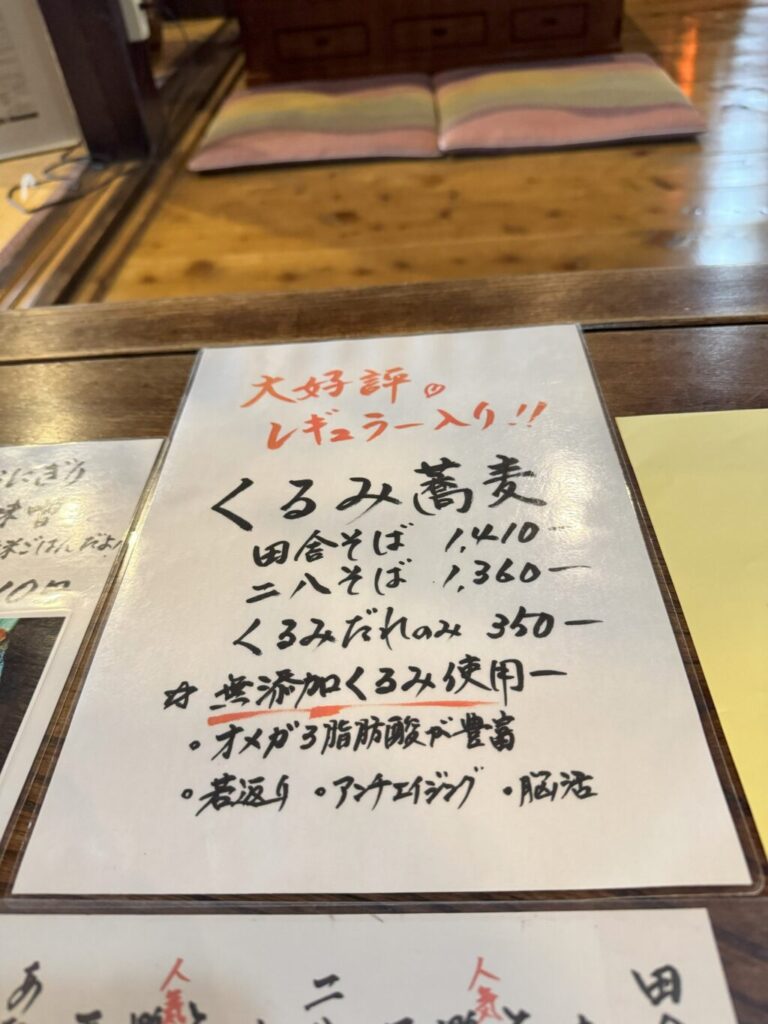 大好評。
レギュラー入り!!
くるみ蕎麦
田舎そば 1,410-
二八そば 1,360-
くるみだれのみ 350-
☆ 無添加くるみ使用-
・オメガ3脂肪酸が豊富
・若返り ・アンチエイジング ・脳活
おにぎり
味噌
米ごはんだよ
人気
二
人気
田舎
あ